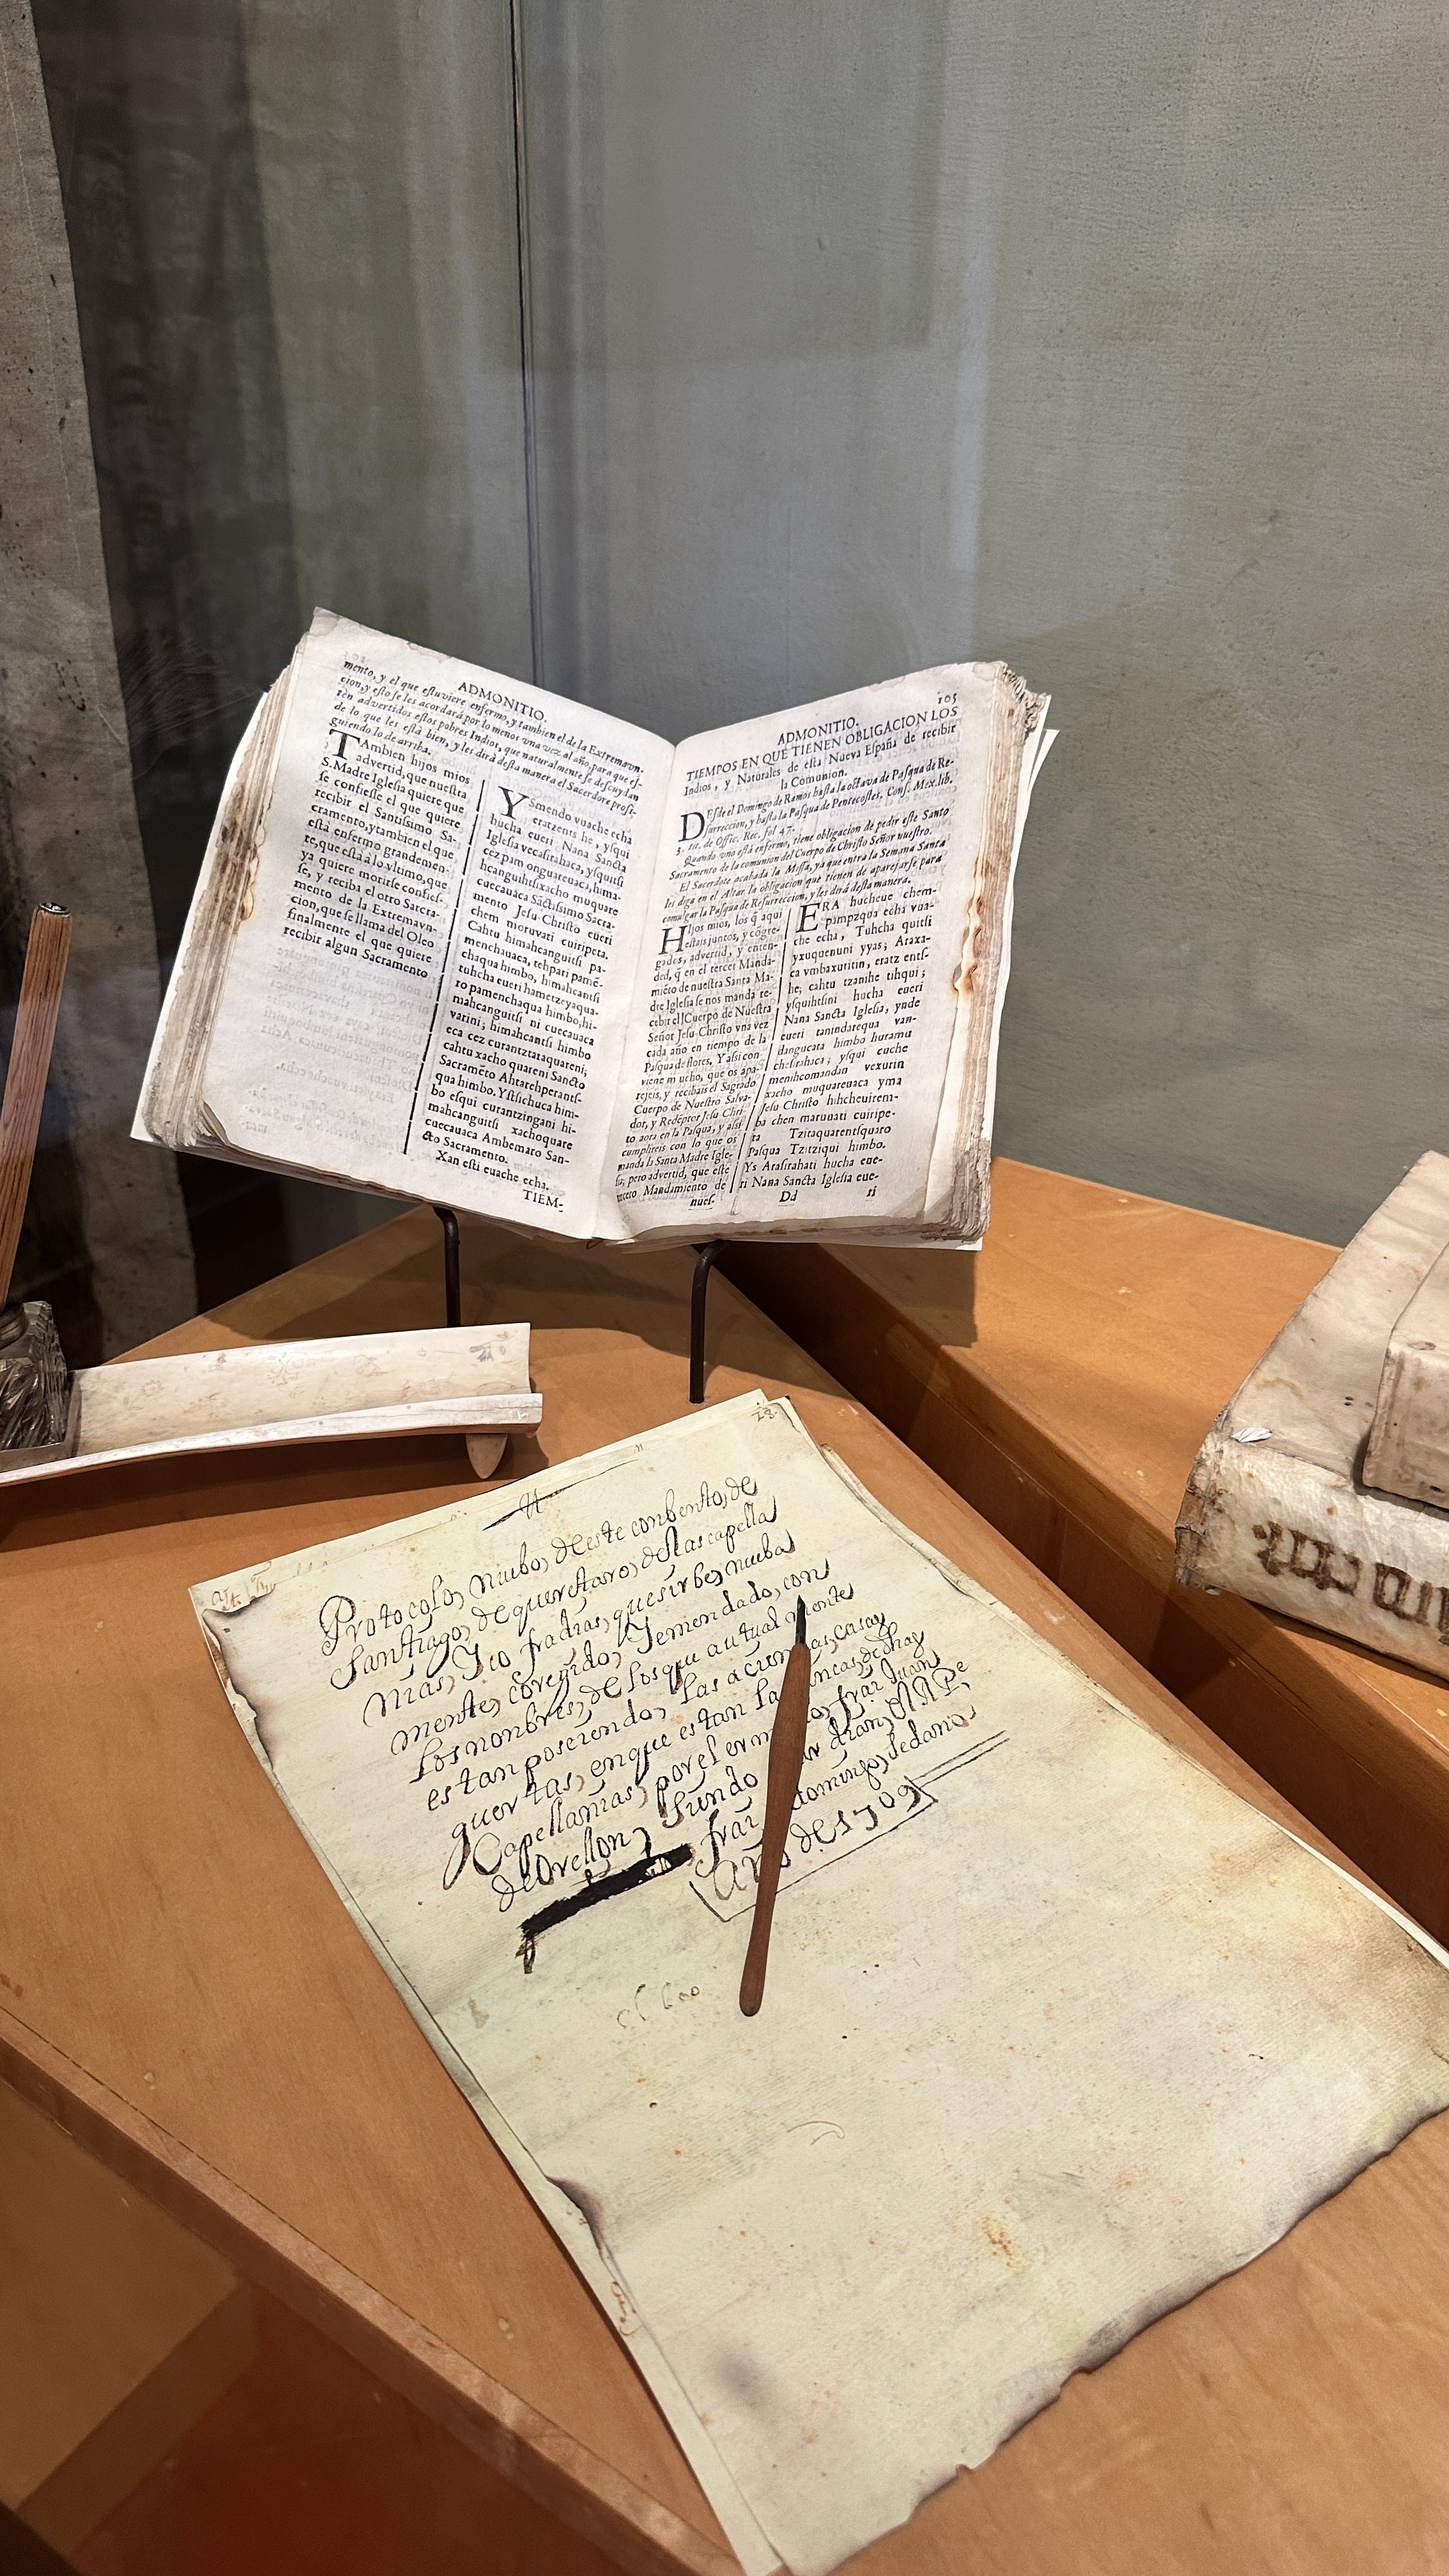 ADMONITIO.
mento, y el que estuviere enfermo, y tambien el de la Extremavn-
cion, y esto se les acordará por lo menos vna vez al año, para que es-
tén advertidos estos pobres Indios, que naturalmente se descuydan
de lo que les está bien, y les dirá desta manera el Sacerdote prosi-
guiendo lo de arriba.
TAmbien hijos mios
advertid, que nuestra
S. Madre Iglesia quiere que
se confiesse el que quiere
recibir el Santissimo Sa-
cramento, y tambien el que
está enfermo grandemen-
te, que está à lo vltimo, que
ya quiere morirse confies-
se, y reciba el otro Sacra-
mento de la Extremavn-
cion, que se llama del Oleo
finalmente el que quiere
recibir algun Sacramento
YSmendo vuache echa
eratzents he, ysqui
hucha eueri Nana Sancta
Iglesia vecasirahaca, ysquitsi
cez pam onguareuaca, hima-
hcanguihtsixacho muquare
cuecauaca Sãctissimo Sacra-
mento Jesu-Christo eueri
chem moruvati cuiripeta.
Cahtu himahcanguitsi pa-
menchauaca, tehpari pamẽ-
chaqua himbo, himahcantsi
tuhcha eueri hametzeyaqua-
ro pamenchaqua himbo, hi-
mahcanguitsi ni cuecauaca
varini; himahcantsi himbo
eca cez curantztataquareni;
cahtu xacho quareni Sancto
Sacramẽto Ahtarehperants-
qua himbo. Ystsichuca him-
bo esqui curantzingani hi-
mahcanguitsi xachoquare
cuecauaca Ambemaro San-
cto Sacramento.
Xan esti euache echa.
TIEM-
105
ADMONITIO.
TIEMPOS EN QUE TIENEN OBLIGACION LOS
Indios, y Naturales de esta Nueva España de recibir
la Comunion.
DEsde el Domingo de Ramos hasta la octava de Pasqua de Re-
surreccion, y hasta la Pasqua de Pentecostes, Conf. Mex. lib.
3. tit. de Offic. Rec. fol 47.
Quando vno está enfermo, tiene obligacion de pedir este Santo
Sacramento de la comunion del Cuerpo de Christo Señor nuestro.
El Sacerdote acabada la Missa, ya que entra la Semana Santa
les diga en el Altar la obligacion que tienen de aparejarse para
comulgar la Pasqua de Resurreccion, y les dirá desta manera.
HIjos mios, los q̃ aqui
estais juntos, y cõgre-
gados, advertid, y enten-
ded, q̃ en el tercer Manda-
miẽto de nuestra Santa Ma-
dre Iglesia se nos manda re-
cebir el Cuerpo de Nuestro
Señor Jesu-Christo vna vez
cada año en tiempo de la
Pasqua de flores. Y assi con-
viene mucho, que os apa-
rejeis, y recibais el Sagrado
Cuerpo de Nuestro Salva-
dor, y Redẽptor Jesu Chri-
to aora en la Pasqua, y assi
cumplireis con lo que os
manda la Santa Madre Igle-
sia; pero advertid, que este
tercero Mandamiento de
nues-
ERA hucheue chem-
pampzqua echa vua-
che echa, Tuhcha quitsi
yxuquenuni yyas; Araxa-
ca vmbaxutitin, eratz ents-
he; cahtu tzanihe tihqui;
ysquihtsini hucha eueri
Nana Sancta Iglesia, ynde
eueri tanindarequa van-
dangucata himbo huramu
chesirahaca; ysqui cuche
menihcomandan vexurin
xacho muquareuaca yma
Jesu Christo hihcheuirem-
ba chen marunati cuiripe-
ta Tzitaquarentsquaro
Pasqua Tzitziqui himbo.
Ys Arasirahati hucha eue-
ri Nana Sancta Iglesia eue-
Dd ri
Protocolo, nuebo, deeste conbento, de
Santiago, de queretaro, deslascapella
nias, Yco fradias, quesirbe, nueba
mente, coregido, Yemendado, con
los nombres, de los que autual mente
estan poseiendo, las acien as, casas
guertas, enque estan las incas, dichas
Capellanias, por el erm o, frai Juan
de Orellon, frai domingo, Sedano,
Año de 1709